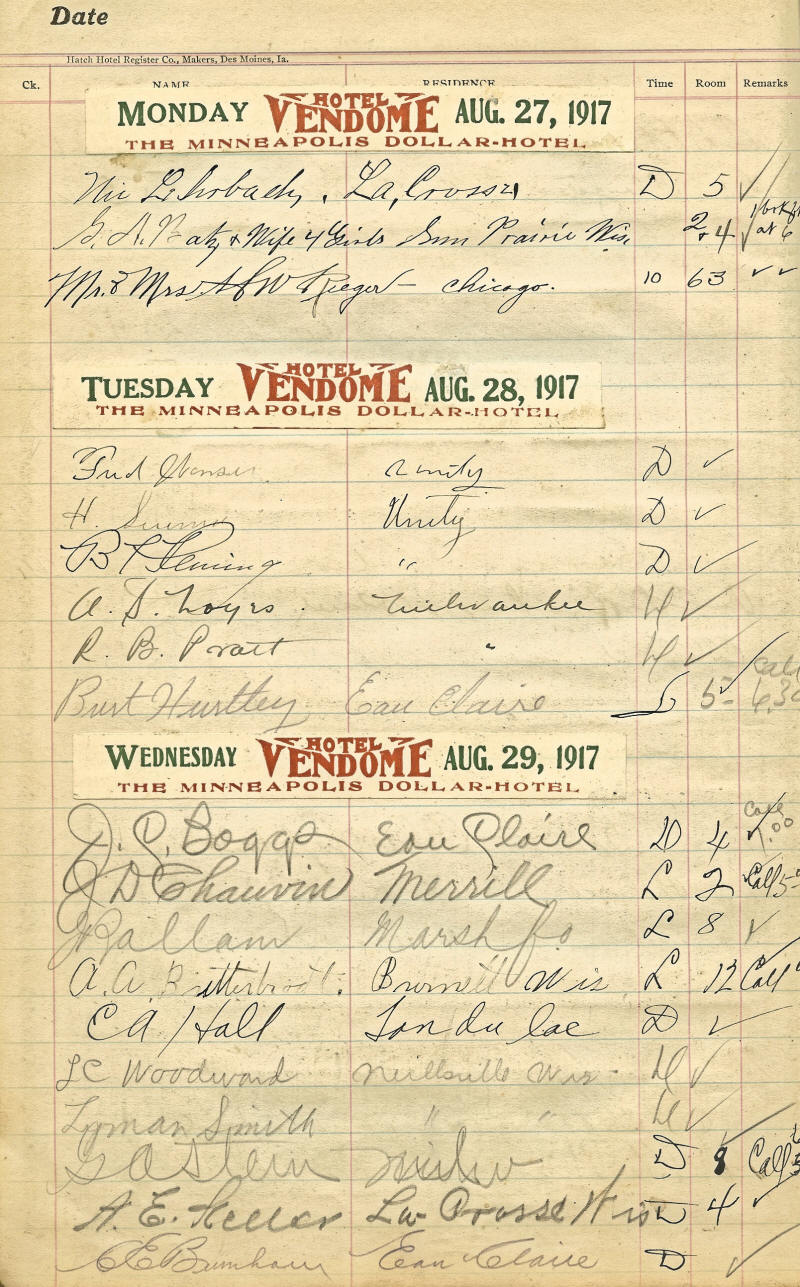 Date
Hatch Hotel Register Co., Makers, Des Moines, Ia.
Ck. NAME RESIDENCE Time Room Remarks
MONDAY HOTEL VENDOME AUG. 27, 1917
THE MINNEAPOLIS DOLLAR-HOTEL
La Crosse D 5 ✓
& Wife 4 Girls Prairie Wis. 2 & 4 ✓ at 6
Mr. & Mrs Rieger – Chicago. 10 63 ✓ ✓
TUESDAY HOTEL VENDOME AUG. 28, 1917
THE MINNEAPOLIS DOLLAR-HOTEL
Fred Unity D ✓
H. Unity D ✓
B Fleming " D ✓
A. S. Milwaukee ✓
R. B. Pratt " ✓
Burt Hurtley Eau Claire 5 ✓ Call 6.30
WEDNESDAY HOTEL VENDOME AUG. 29, 1917
THE MINNEAPOLIS DOLLAR-HOTEL
J. C. Boggs Eau Claire D 4 ✓ Call 7.00
J D Chauvin Merrill L 2 Call 5
Hallam Marsh L 8 ✓
A. A. Burnett Wis L 12 Call
C A Hall Fon du lac D ✓
L C Woodward Neillsville Wis - ✓
Lyman Smith " " ✓
Stein D 8 Call
A. E. La Crosse Wis D 4 ✓
C E Burnham Eau Claire D ✓